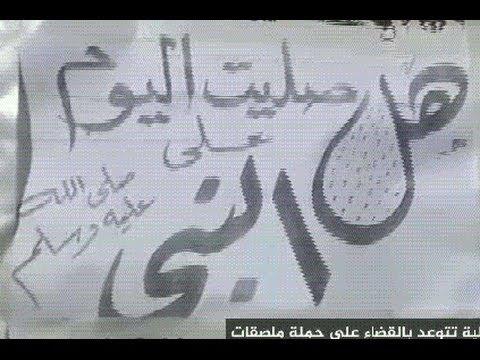 هل صليت اليوم
على
النبي
صلى الله
عليه وسلم
تتوعد بالقضاء على حملة ملصقات